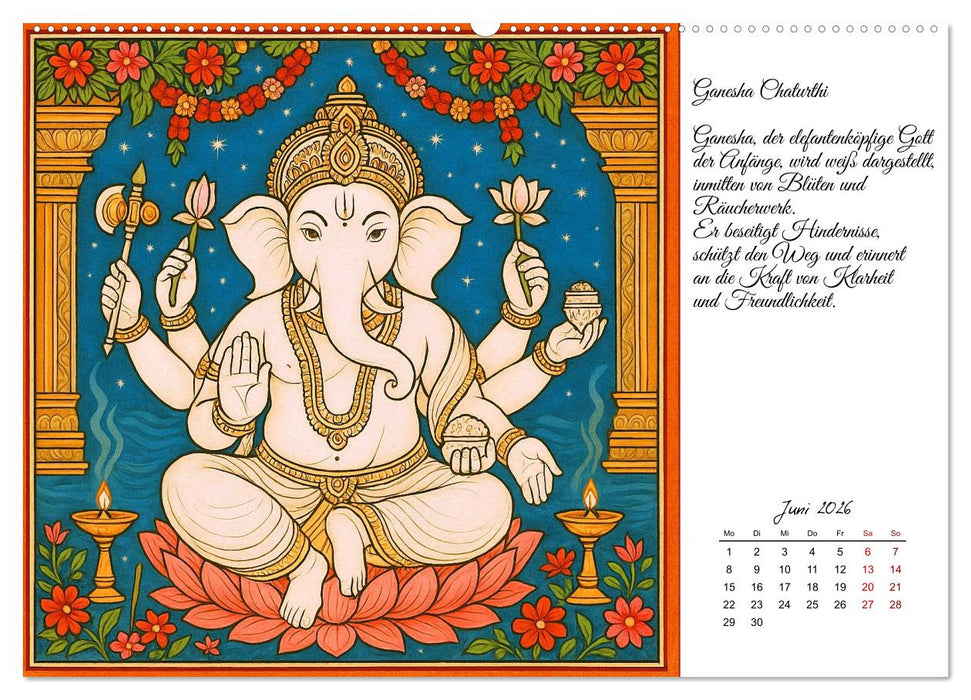 Ganesha Chaturthi
Ganesha, der elefantenköpfige Gott
der Anfänge, wird weiß dargestellt,
inmitten von Blüten und
Räucherwerk.
Er beseitigt Hindernisse,
schützt den Weg und erinnert
an die Kraft von Klarheit
und Freundlichkeit.
Juni 2026
Mo Di Mi Do Fr Sa So
1 2 3 4 5 6 7
8 9 10 11 12 13 14
15 16 17 18 19 20 21
22 23 24 25 26 27 28
29 30